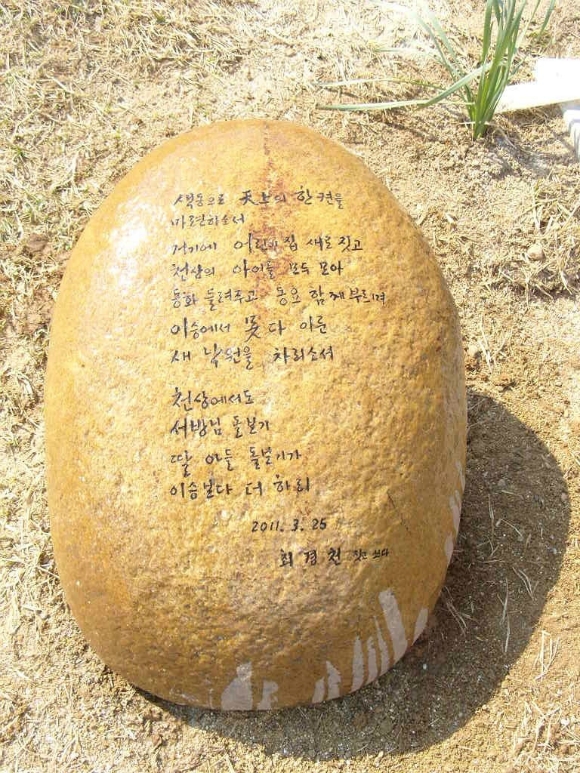 색동으로 天上의 한 켠을
마련하소서
거기에 어린이집 새로 짓고
천상의 아이들 모두 모아
동화 들려주고 동요 함께 부르며
이승에서 못다 이룬
새 낙원을 차리소서
천상에서도
서방님 돌보기
딸 아들 돌보기가
이승보다 더 하리
2011. 3. 25
최경천 짓고 쓰다